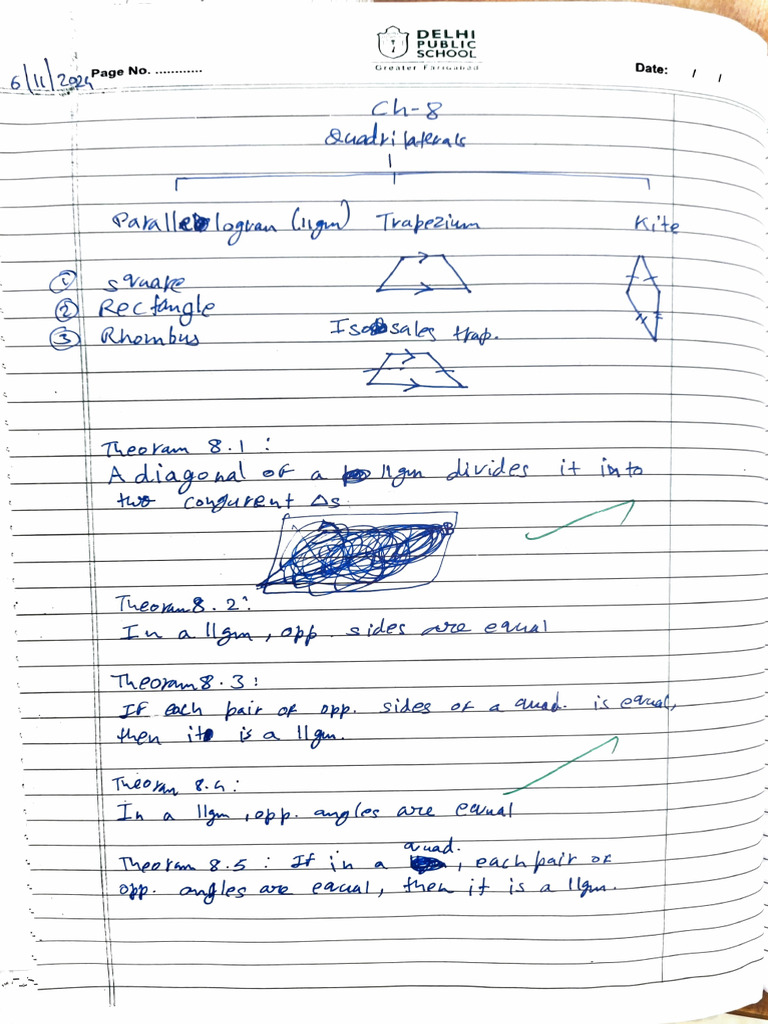 DELHI
PUBLIC
SCHOOL
Greater Faridabad
6/11/2024 Page No. ............ Date: / /
Ch-8
Quadrilaterals
Parallelogram (llgm) Trapezium Kite
① square
② Rectangle
③ Rhombus Isosales trap.
Theoram 8.1 :
A diagonal of a llgm divides it into
two congurent Δs.
B
Theoram 8.2:
In a llgm, opp. sides are equal
Theoram 8.3 :
If each pair of opp. sides of a quad. is equal,
then it is a llgm.
Theoram 8.4:
In a llgm, opp. angles are equal
Theoram 8.5 : If in a quad., each pair of
opp. angles are equal, then it is a llgm.